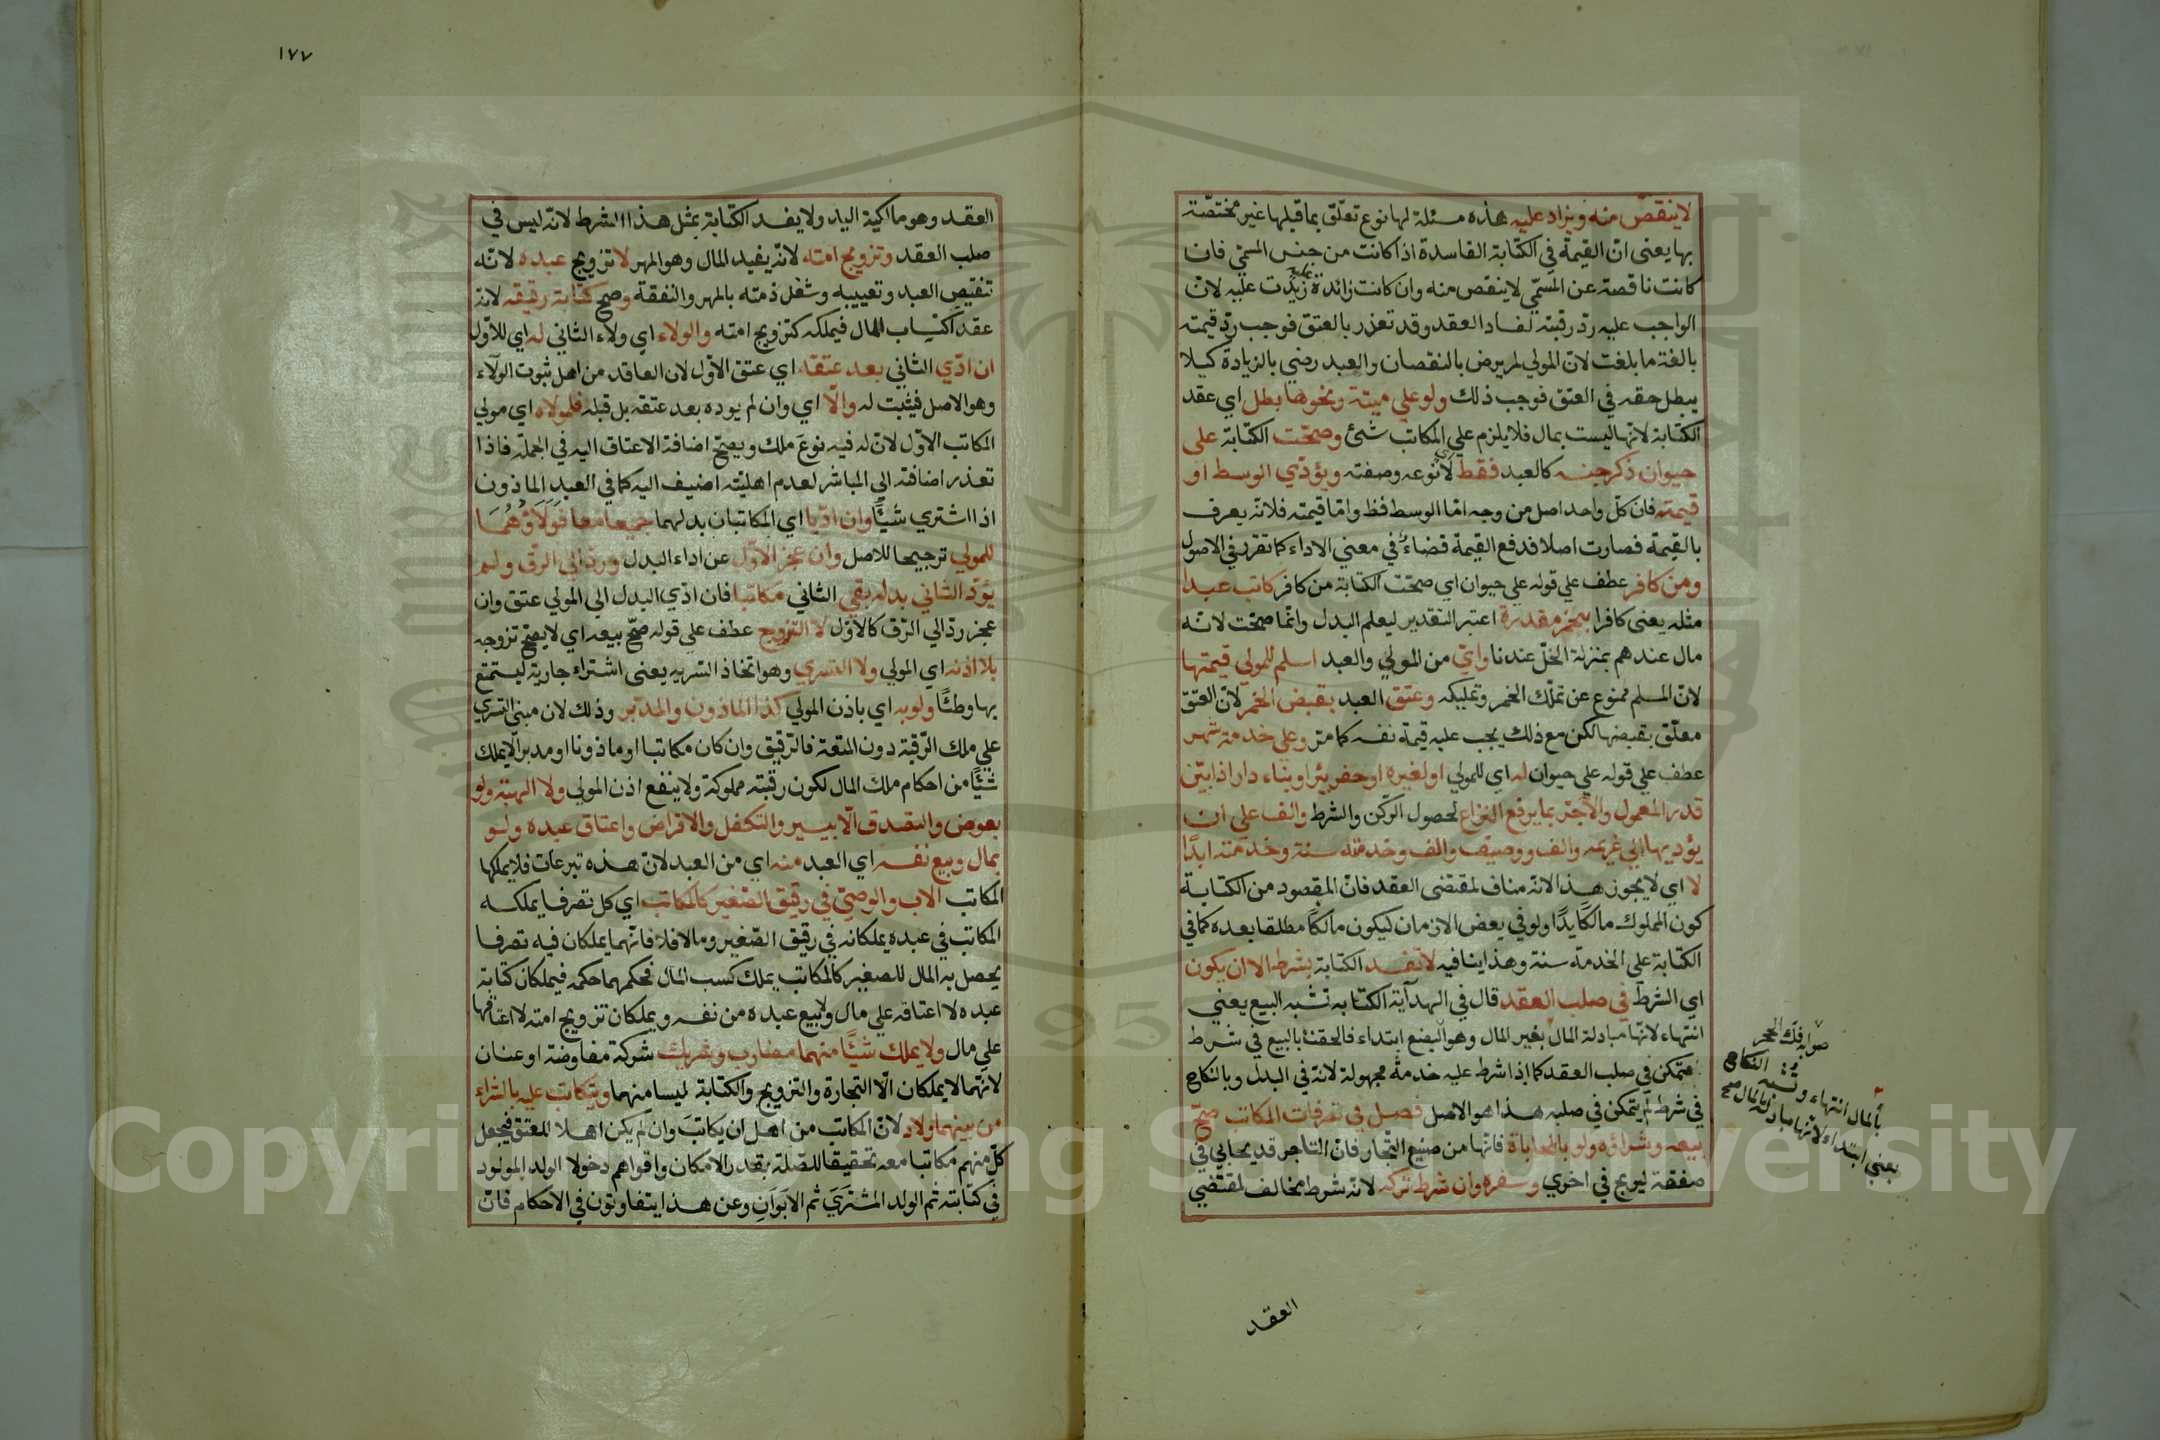 لا ينقص منه ويزاد عليه هذه مسئلة لها نوع تعلّق بما قبلها غير مختصّة
بها يعنى انّ القيمة في الكتابة الفاسدة اذا كانت من جنس المسمّي فان
كانت ناقصة عن المسمّي لا ينقص منه وان كانت زائدة زيدت عليه لانّ
الواجب عليه ردّ رقبته لفساد العقد وقد تعذر بالعتق فوجب ردّ قيمته
بالغة ما بلغت لانّ المولي لم يرض بالنقصان والعبد رضي بالزيادة كيلا
يبطل حقه في العتق فوجب ذلك ولو علي ميتة ونحوها بطل اي عقد
الكتابة لانّها ليست بمال فلا يلزم علي المكاتب شئ وصحّت الكتابة علي
حيوان ذكر جنسه كالعبد فقط لا نوعه وصفته ويؤدّي الوسط او
قيمته فانّ كلّ واحد اصل من وجه امّا الوسط فظ وامّا قيمته فلانّه يعرف
بالقيمة فصارت اصلا فدفع القيمة قضاء في معني الاداء كما تقرر في الاصول
ومن كافر عطف علي قوله علي حيوان اي صحّت الكتابة من كافر كاتب عبدا
مثله يعنى كافرا بخمر مقدرة اعتبر التقدير ليعلم البدل وانّما صحّت لانّه
مال عندهم بمنزلة الخلّ عندنا وايّ من المولي والعبد اسلم للمولي قيمتها
لانّ المسلم ممنوع عن تملّك الخمر وتمليكه وعتق العبد بقبض الخمر لانّ العتق
معلّق بقبضها لكن مع ذلك يجب عليه قيمة نفسه كما مرّ وعلي خدمة شهر
عطف علي قوله علي حيوان له اي للمولي او لغيره او حفر بئر او بناء دار اذا بيّن
قدر المعمول والآجرّ بما يرفع النزاع لحصول الركن والشرط والف علي ان
يؤديها الي غريمه والف ووصيف والف وخدمته سنة وخدمته ابدًا
لا اي لا يجوز هذا لانّه مناف لمقتضى العقد فانّ المقصود من الكتابة
كون المملوك مالكًا يدًا ولو في بعض الازمان ليكون مالكًا مطلقا بعده كما في
الكتابة علي الخدمة سنة وهذا ينافيه لا تفسد الكتابة بشرط الا ان يكون
اي الشرط في صلب العقد قال في الهدآية الكتابة تشبه البيع يعني
انتهاء لانّها مبادلة المال بغير المال وهو البضع ابتداء فالحقت بالبيع في شرط
متمكن في صلب العقد كما اذا شرط عليه خدمة مجهولة لانّه في البدل وبالنكاح
في شرط لم يتمكن في صلبه هذا هو الاصل فصل في تصرفات المكاتب صحّ
بيعه وشراؤه ولو بالمحاباة فانّها من صنيع التجار فانّ التاجر قد يحابي في
صفقة ليربح في اخري وسفره وان شرط تركه لانّه شرط مخالف لمقتضي
صوابه فكّ الحجر
النكاح
بالمال انتهاء وتشبه
يعني ابتداء لانها مبادلة المال بالمال صح
العقد
١٧٧
العقد وهو مالكية اليد ولا يفسد الكتابة بمثل هذا الشرط لانّه ليس في
صلب العقد وتزويج امته لانّه يفيد المال وهو المهر لا تزويج عبده لانّه
تنقيص العبد وتعييبه وشغل ذمته بالمهر والنفقة وصحّ كتابة رقيقه لانّه
عقد اكتساب المال فيملكه كتزويج امته والولاء اي ولاء الثاني له اي للاوّل
ان ادّي الثاني بعد عتقه اي عتق الاوّل لان العاقد من اهل ثبوت الولاء
وهو الاصل فيثبت له والّا اي وان لم يوده بعد عتقه بل قبله فلمولاه اي مولي
المكاتب الاوّل لانّ له فيه نوع ملك ويصحّ اضافة الاعتاق اليه في الجملة فاذا
تعذر اضافته الي المباشر لعدم اهليته اضيف اليه كما في العبد الماذون
اذا اشتري شيئًا وان ادّيا اي المكاتبان بدلهما جميعا معا فولاؤهما
للمولي ترجيحا للاصل وان عجز الاوّل عن اداء البدل وردّ الي الرّق ولم
يؤدّ الثاني بدله بقي الثاني مكاتبا فان ادّي البدل الي المولي عتق وان
عجز ردّ الي الرّق كالاوّل لا التزويج عطف علي قوله صحّ بيعه اي لا يصحّ تزوجه
بلا اذنه اي المولي ولا التسري وهو اتخاذ السّريه يعنى اشتراء جارية ليستمتع
بها وطئًا ولو به اي باذن المولي كذا الماذون والمدبّر وذلك لان مبنى التسري
علي ملك الرّقبة دون المتعة فالرّقيق وان كان مكاتبا او ماذونا او مدبرا لا يملك
شيئًا من احكام ملك المال لكون رقبته مملوكة ولا ينفع اذن المولي ولا الهبة ولو
بعوض والتصدق الّا بيسير والتكفل والاقراض واعتاق عبده ولو
بمال وبيع نفسه اي العبد منه اي من العبد لانّ هذه تبرعات فلا يملكها
المكاتب الاب والوصيّ في رقيق الصّغير كالمكاتب اي كل تصرف يملكه
المكاتب في عبده يملكانه في رقيق الصّغير وما لا فلا فانّهما يملكان فيه تصرفا
يحصل به المال للصغير كالمكاتب يملك كسب المال فحكمهما حكمه فيملكان كتابة
عبده لا اعتاقه علي مال ولا بيع عبده من نفسه ويملكان تزويج امته لا اعتاقها
علي مال ولا يملك شيئًا منهما مضارب وشريك شركة مفاوضة او عنان
لانّهما لا يملكان الّا التجارة والتزويج والكتابة ليسا منهما ويتكاتب عليه بالشراء
من بينهما ولاد لانّ المكاتب من اهل ان يكاتب وان لم يكن اهلا للعتق فيجعل
كلّ منهم مكاتبا معه تحقيقا للصّلة بقدر الامكان واقواهم دخولا الولد المولود
في كتابته ثم الولد المشتري ثم الابوان وعن هذا يتفاوتون في الاحكام فانّ